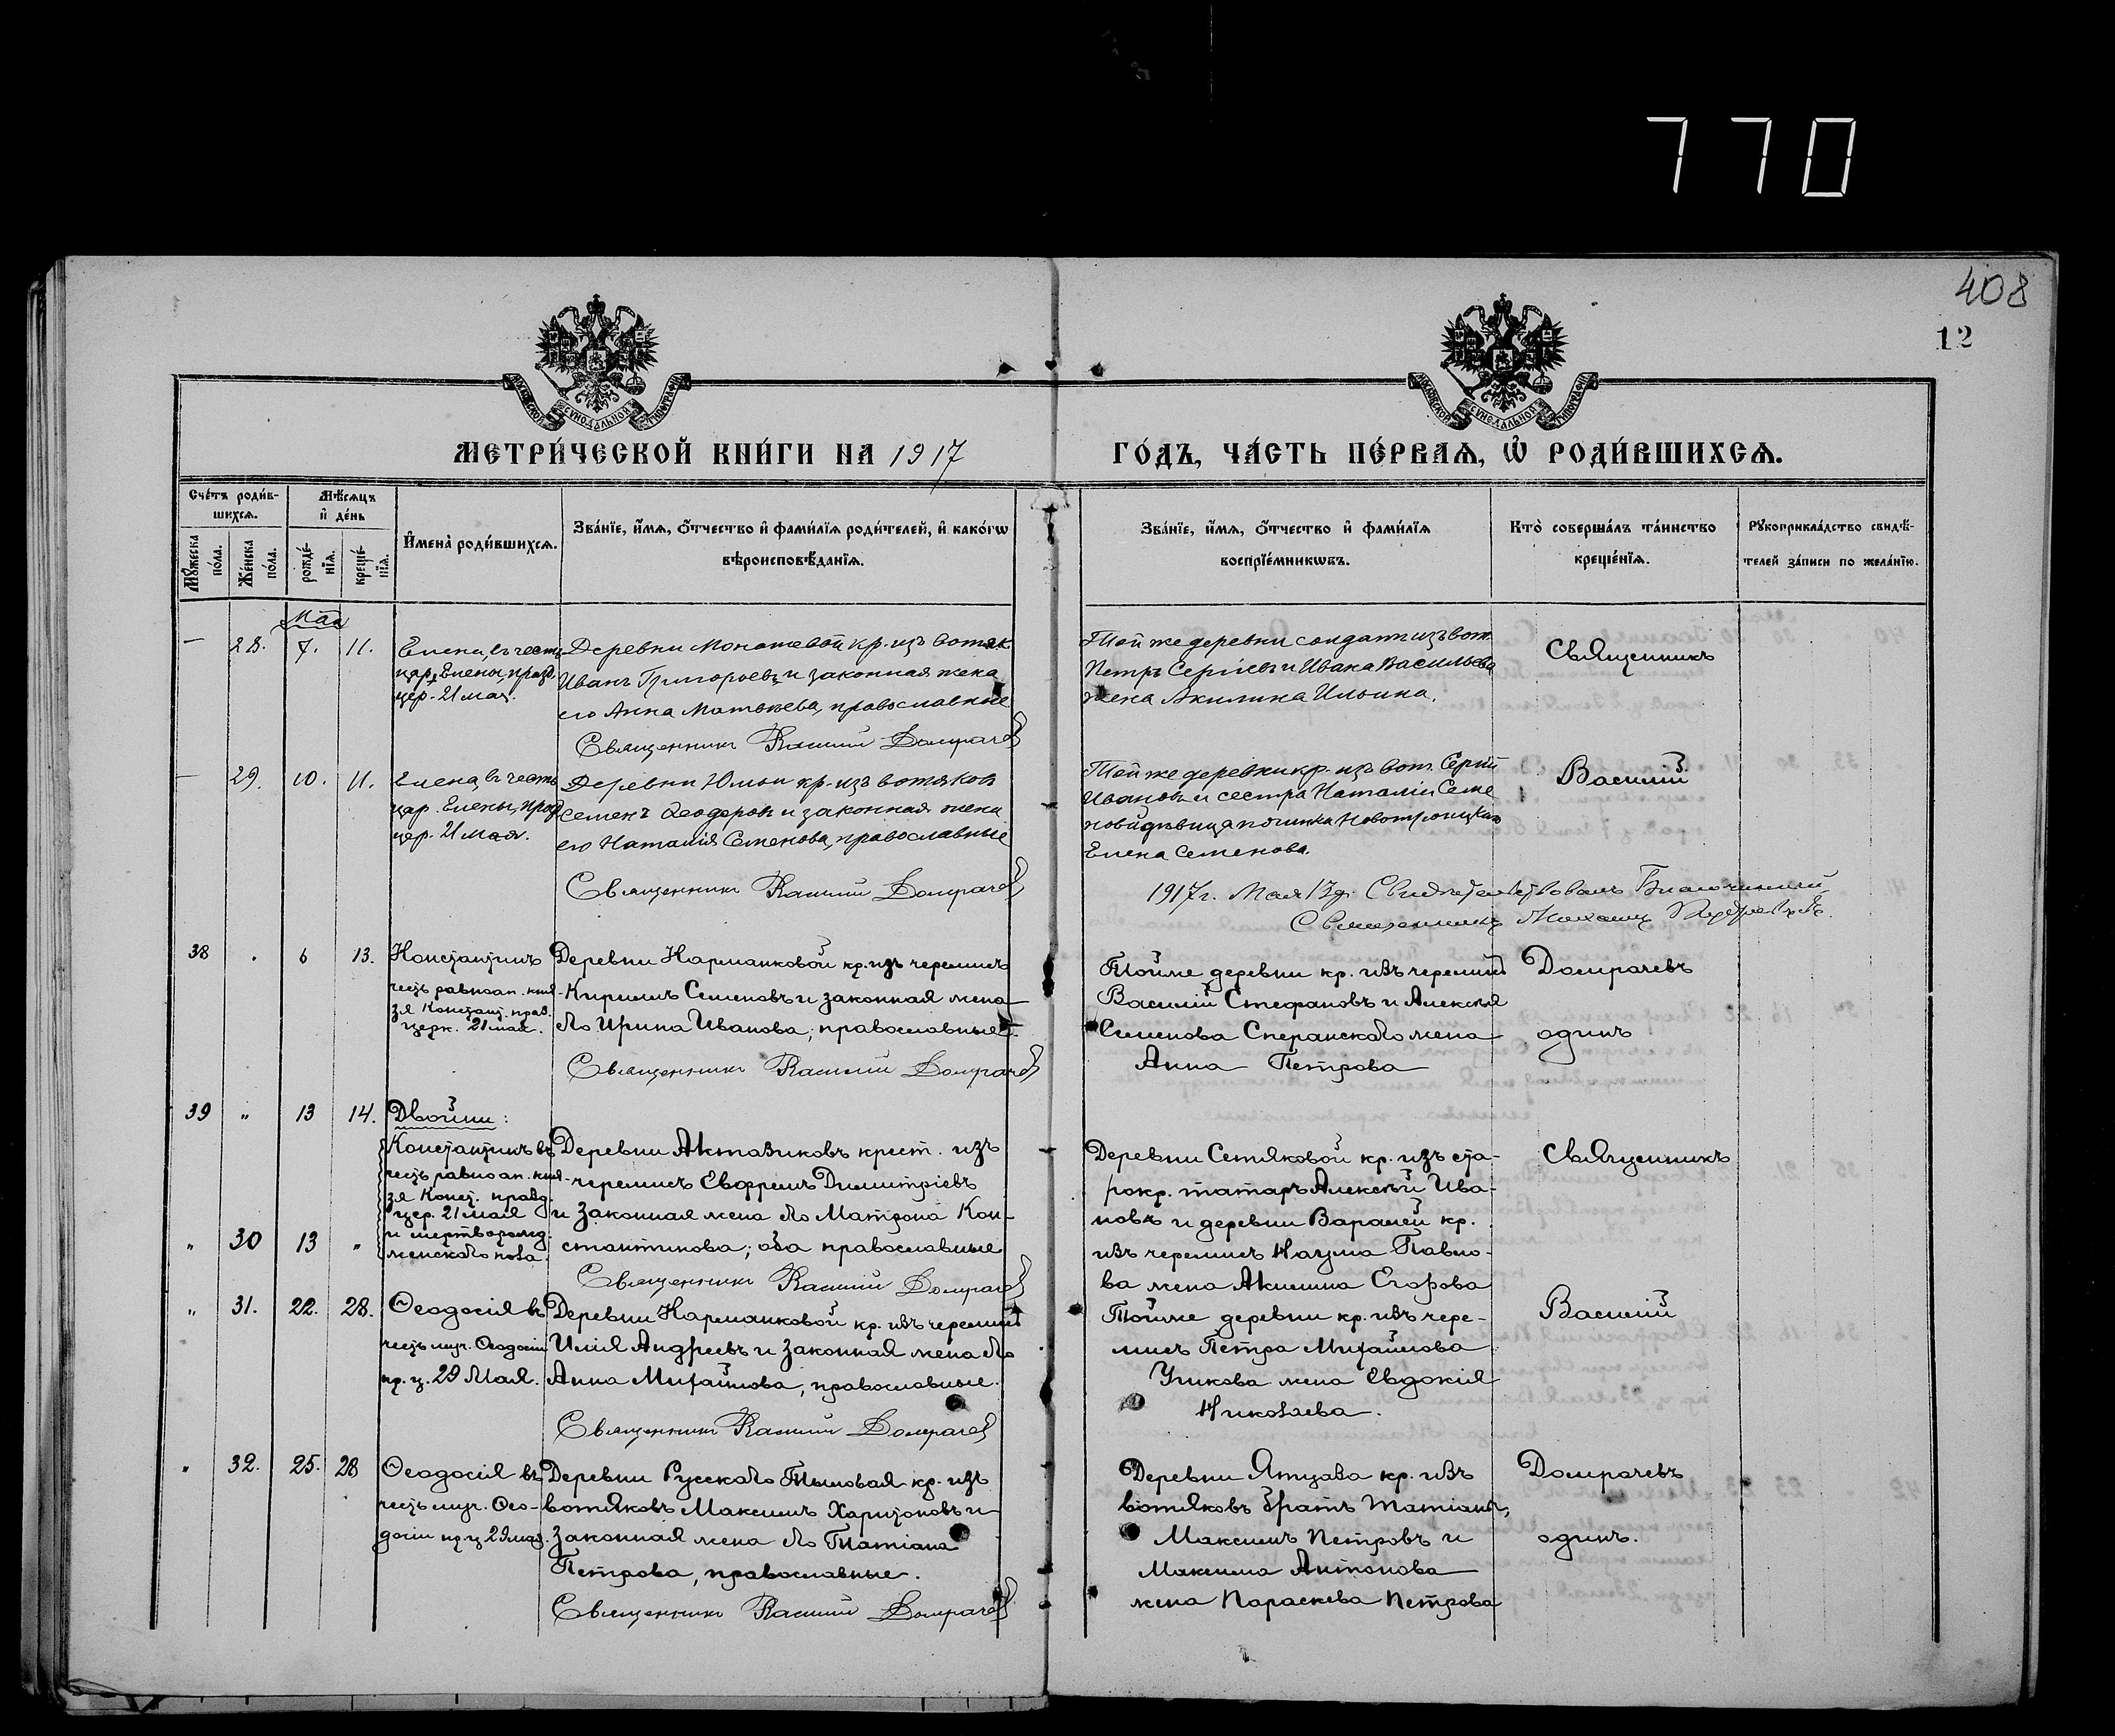 770
408
12
МОСКОВСКОЙ СѴНОДАЛЬНОЙ ТИПОГРАФІИ
МОСКОВСКОЙ СѴНОДАЛЬНОЙ ТИПОГРАФІИ
МЕТРИ́ЧЕСКОЙ КНИ́ГИ НА 1917
ГО́ДЪ, ЧА́СТЬ ПЕ́РВАѦ, Ѽ РОДИ́ВШИХСѦ.
Сче́тъ роди́в-
шихсѧ.
Мѣ́сѧцъ
и҆ де́нь
Мꙋ́жеска
по́ла.
Же́нска
по́ла.
рожде́-
нїѧ.
креще́-
нїѧ.
И҆мена̀ роди́вшихсѧ.
Зва́нїе, и҆́мѧ, ѻ҆́тчество и҆ фами́лїѧ роди́телей, и҆ како́гѡ
вѣроисповѣ́данїѧ.
Зва́нїе, и҆́мѧ, ѻ҆́тчество и҆ фами́лїѧ
воспрїе́мникѡвъ.
Кто̀ соверша́лъ та́инство
креще́нїѧ.
Рꙋкоприкла́дство свидѣ́-
телей за́писи по жела́нїю.
Мая
— 28. 7. 11.
Елена, въ честь
цар. Елены, празд.
цер. 21 мая.
Деревни кр. изъ вотяк.
Иванъ Григорьевъ и законная жена
его Анна Матвѣева, православные
Священникъ Василій Домрачевъ
Той же деревни солдатъ изъ вот.
Петръ Сергіевъ и Ивана Васильева
жена Акилина Ильина.
Священникъ
— 29. 10. 11.
Елена, въ честь
цар. Елены, празд.
цер. 21 мая.
Деревни Юмьи кр. изъ вотяковъ
Семенъ Ѳеодоровъ и законная жена
его Наталія Семенова, православные
Священникъ Василій Домрачевъ
Той же деревни кр. изъ вот. Сергій
Ивановъ и сестра Наталіи Семе
новой дѣвица починка Новотроицкаго
Елена Семенова.
Василій
1917 г. Мая 13 д. Свидѣтельствовалъ Благочинный,
Священникъ Михаилъ
38 . 6 13.
Константинъ
честь равноап. кня-
зя Констант. празд.
церк. 21 мая.
Деревни Кармановой кр. изъ черемисъ
Кириллъ Семеновъ и законная жена
его Ирина Иванова, православные.
Священникъ Василій Домрачевъ
Тойже деревни кр. изъ черемисъ
Василій Стефановъ и Алексѣя
Семенова Сперанскаго жена
Анна Петрова
Домрачевъ
одинъ
39 „ 13 14.
Двойни:
Константинъ въ
честь равноап. кня-
зя Конст. празд.
цер. 21 мая
и мертворожд.
женскаго пола.
„ 30 13 „
Деревни Актазиковъ крест. изъ
черемисъ Евфремъ Димитріевъ
и законная жена его Матрона Кон-
стантинова; оба православные
Священникъ Василій Домрачевъ
Деревни Сетяковой кр. изъ ста-
рокр. татаръ Алексѣй Ива-
новъ и деревни Варалей кр.
изъ черемисъ Наума Павло-
ва жена Акилина Егорова
Священникъ
„ 31. 22. 28.
Ѳеодосія въ
честь муч. Ѳеодосіи
пр. ц. 29 Мая.
Деревни Кармановой кр. изъ черемисъ
Илія Андреевъ и законная жена его
Анна Михайлова, православные.
Священникъ Василій Домрачевъ
Тойже деревни кр. изъ чере-
мисъ Петра Михайлова
жена Евдокія
Николаева.
Василій
„ 32. 25. 28
Ѳеодосія въ
честь муч. Ѳео-
досіи пр. ц. 29 мая.
Деревни Русскаго Тыловая кр. изъ
вотяковъ Максимъ Харитоновъ и
законная жена его Татіана
Петрова, православные.
Священникъ Василій Домрачевъ
Деревни кр. изъ
вотяковъ братъ Татіаны,
Максимъ Петровъ и
Максима Антонова
жена Параскева Петрова
Домрачевъ
одинъ.